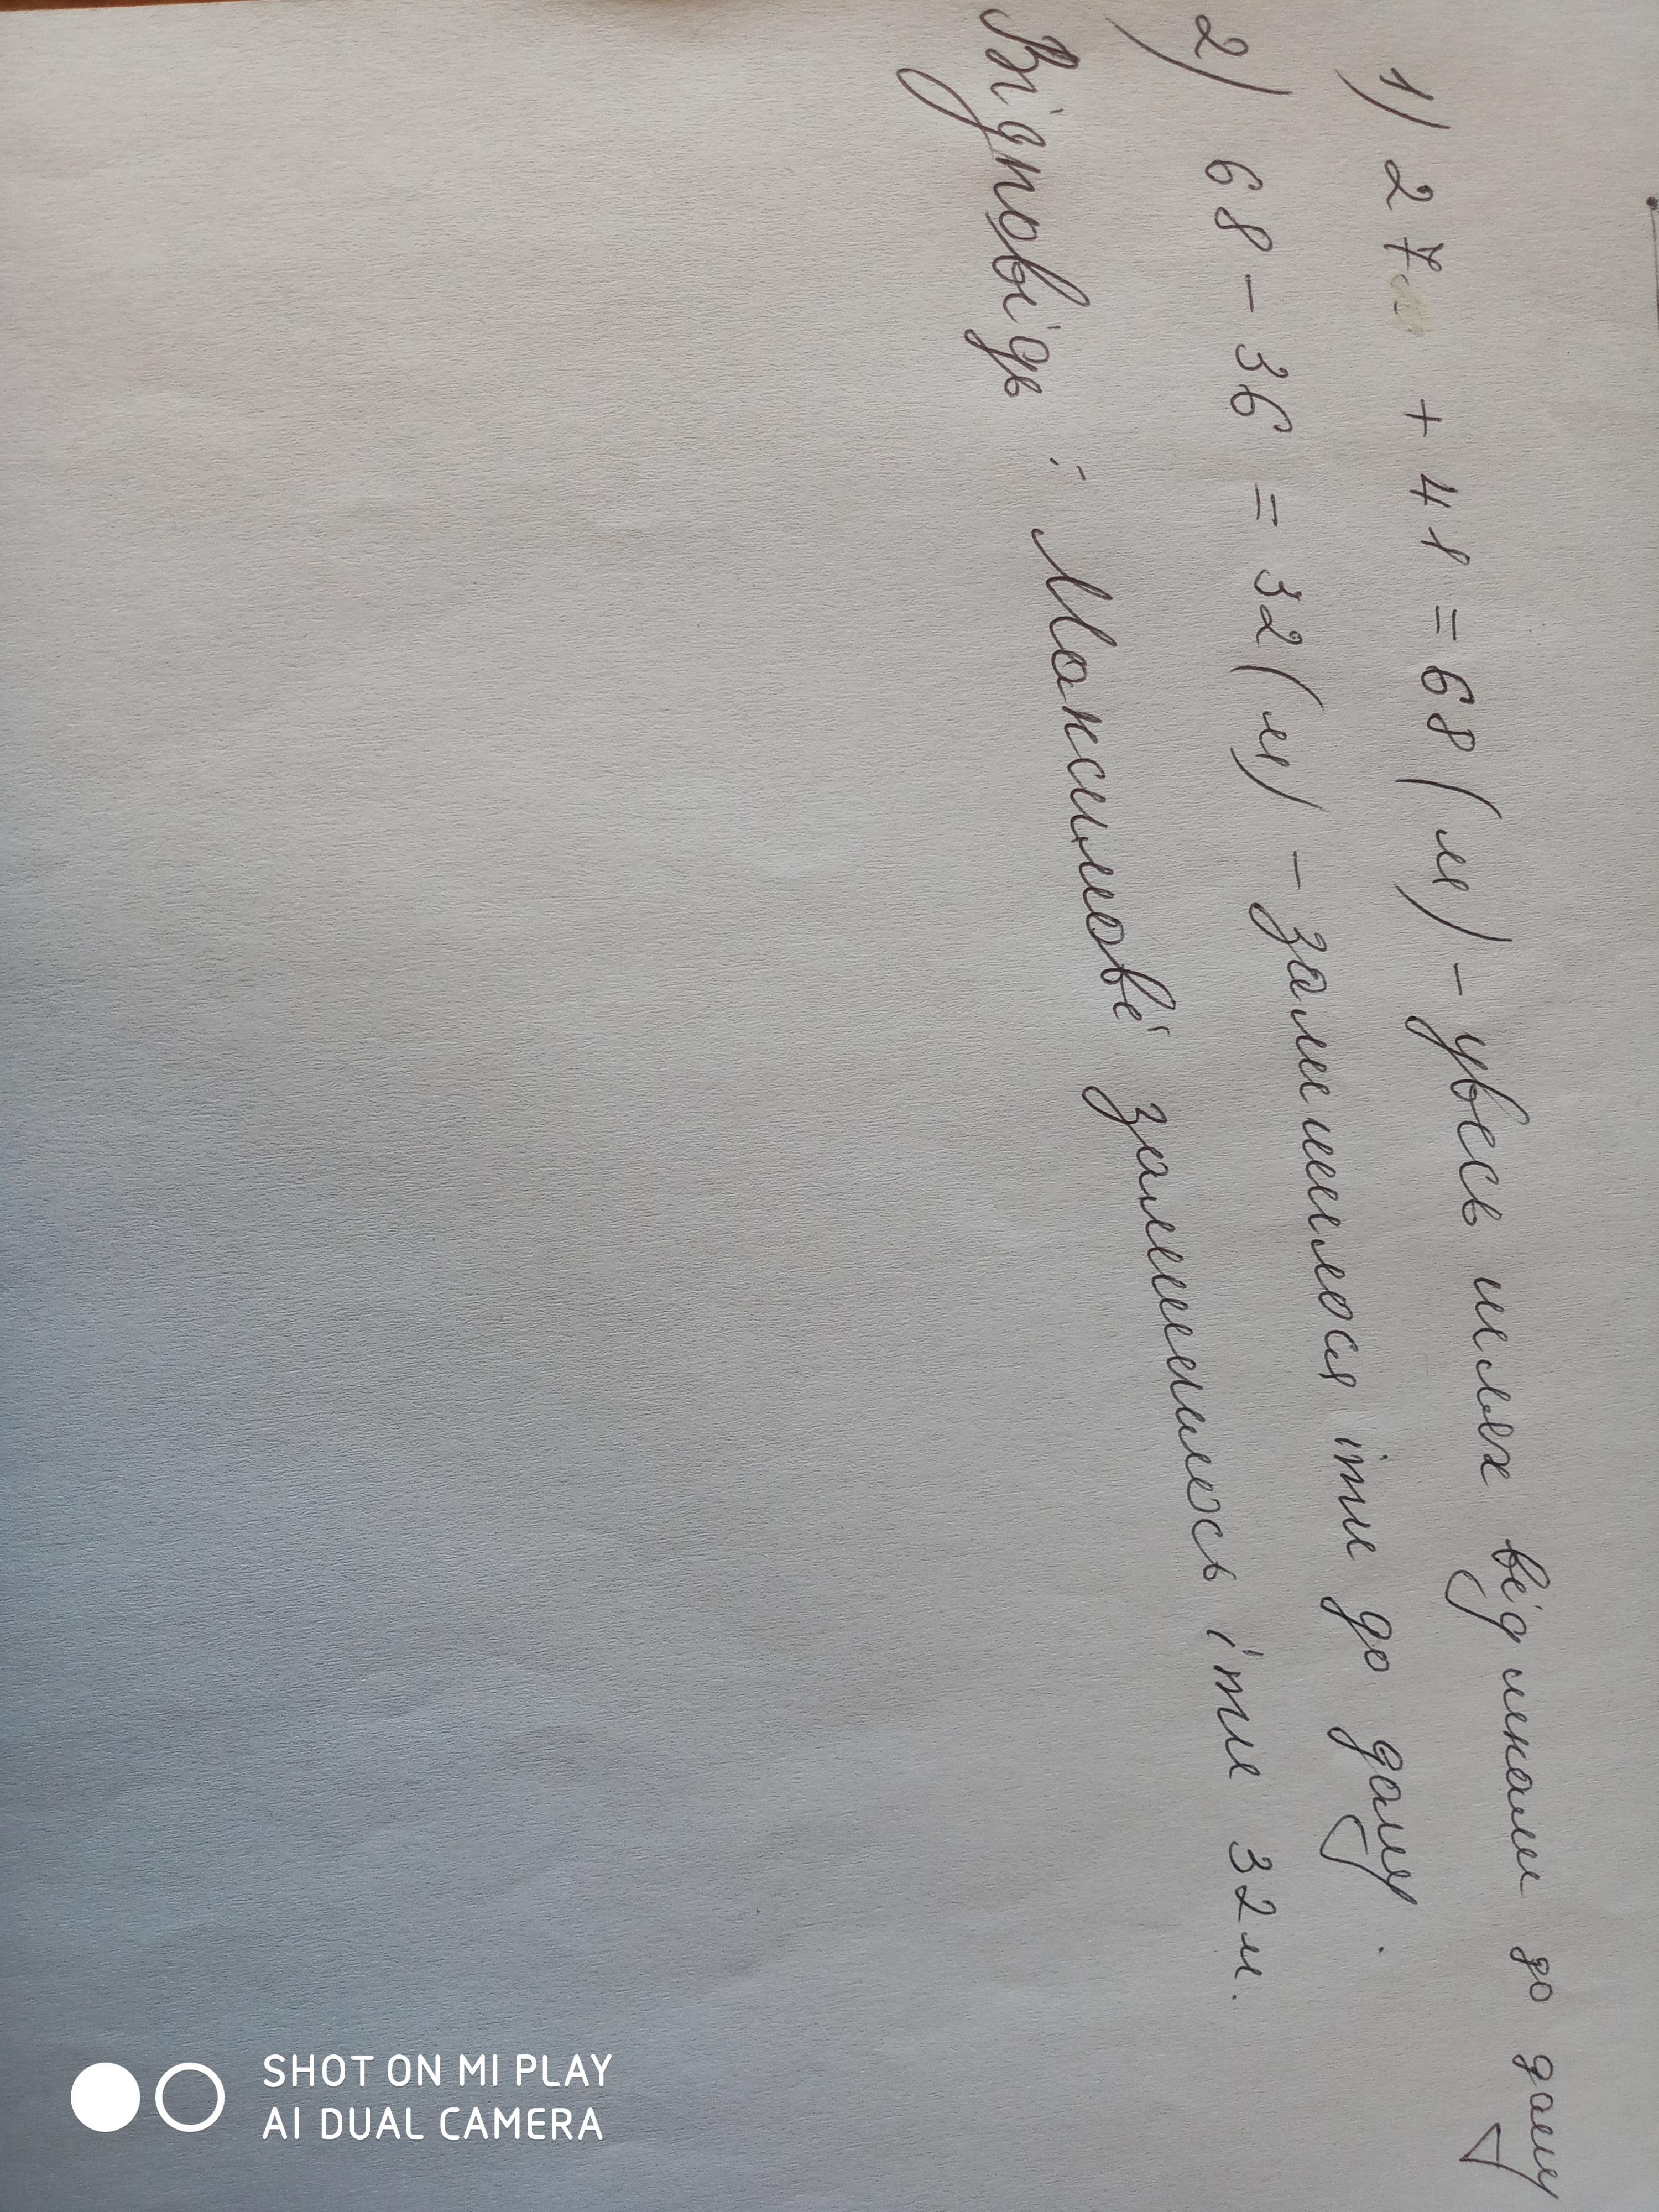 1) 27 + 41 = 68 (м) - увесь шлях від школи до дому
2) 68 - 36 = 32 (м) - залишилося іти до дому.
Відповідь: Максимові залишилось іти 32 м.
SHOT ON MI PLAY
AI DUAL CAMERA